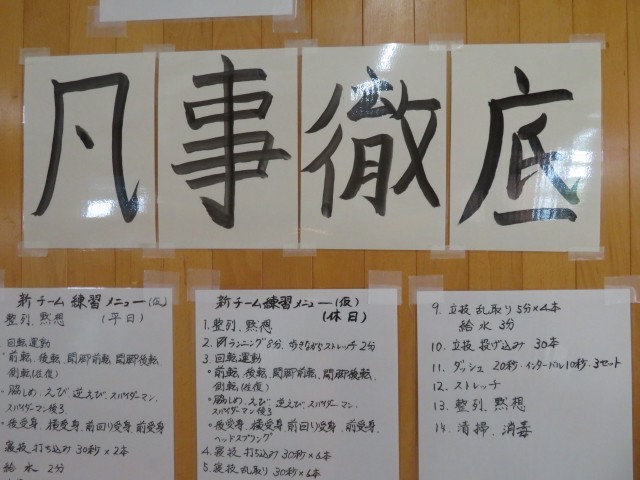 凡事徹底
新チーム練習メニュー(仮)
(平日)
整列、黙想
回転運動
・前転、後転、開脚前転、開脚後転、
側転(左右)
・脇しめ、えび、逆えび、スパイダーマン、
スパイダーマン後3
・後受身、横受身、前回り受身、前受身
寝技 打ち込み 30秒×2本
給水 2分
新チーム練習メニュー(仮)
(休日)
1. 整列、黙想
2. ランニング8分、歩きながらストレッチ2分
3. 回転運動
・前転、後転、開脚前転、開脚後転、
側転(左右)
・脇しめ、えび、逆えび、スパイダーマン、
スパイダーマン後3
・後受身、横受身、前回り受身、前受身、
ヘッドスプリング
4. 寝技 打ち込み 30秒×6本
5. 寝技 乱取り 30秒×6本
9. 立技 乱取り 5分×4本
給水 3分
10. 立技 投げ込み 30本
11. ダッシュ 20秒・インターバル10秒・3セット
12. ストレッチ
13. 整列、黙想
14. 清掃、消毒